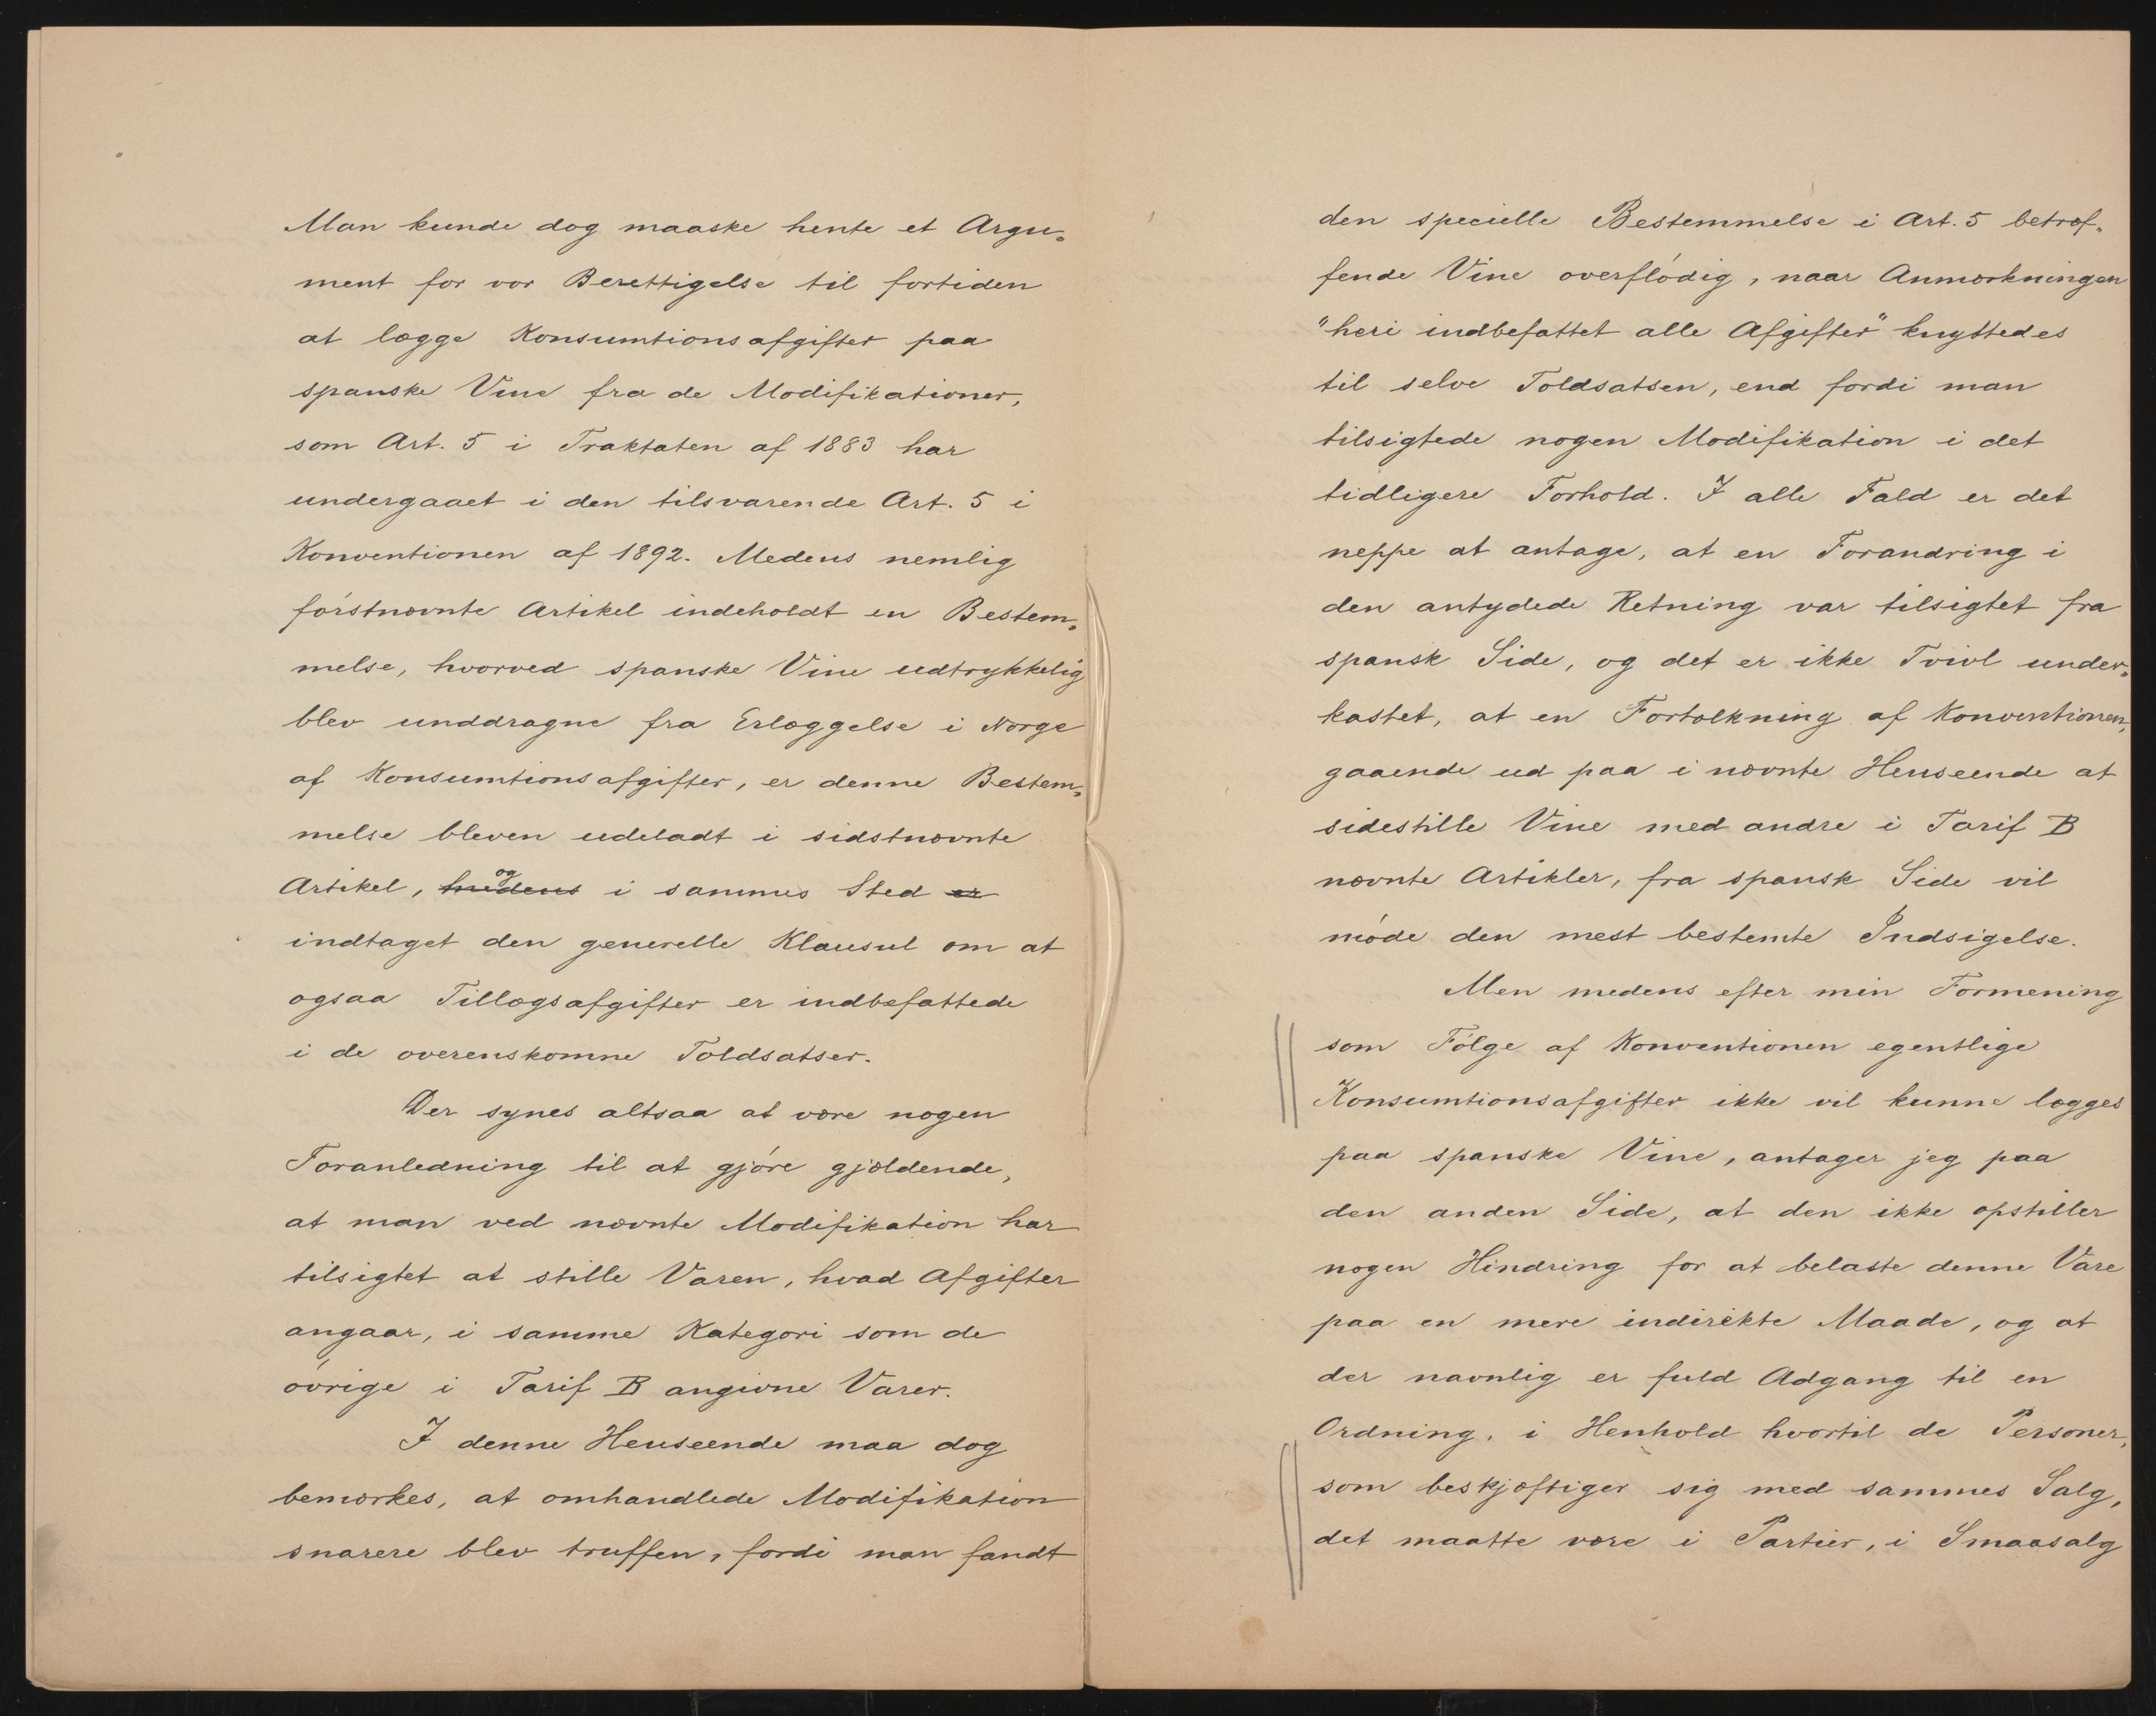 Man kunde dog maaske hente et Argu-
ment for vor Berettigelse til fortiden
at lægge Konsumtionsafgifter paa
spanske Vine fra de Modifikationer,
som Art. 5 i Traktaten af 1883 har
undergaaet i den tilsvarende Art. 5 i
Konventionen af 1892. Medens nemlig
förstnævnte Artikel indeholdt en Bestem-
melse, hvorved spanske Vine udtrykkelig
blev unddragne fra Erlæggelse i Norge
af Konsumtionsafgifter, er denne Bestem-
melse bleven udeladt i sidstnævnte
Artikel, medens og i sammes Sted er
indtaget den generelle Klausul om at
ogsaa Tillægsafgifter er indbefattede
i de overenskomne Toldsatser.
Der synes altsaa at være nogen
Foranledning til at gjöre gjældende,
at man ved nævnte Modifikation har
tilsigtet at stille Varen, hvad Afgifter
angaar, i samme Kategori som de
övrige i Tarif B angivne Varer.
I denne Henseende maa dog
bemærkes, at omhandlede Modifikation
snarere blev truffen, fordi man fandt
den specielle Bestemmelse i Art. 5 betræf-
fende Vine overflödig, naar Anmærkningen
"heri indbefattet alle Afgifter" knyttedes
til selve Toldsatsen, end fordi man
tilsigtede nogen Modifikation i det
tidligere Forhold. I alle Fald er det
neppe at antage, at en Forandring i
den antydede Retning var tilsigtet fra
spansk Side, og det er ikke Tvivl under-
kastet, at en Fortolkning af Konventionen,
gaaende ud paa i nævnte Henseende at
sidestille Vine med andre i Tarif B
nævnte Artikler, fra spansk Side vil
möde den mest bestemte Indsigelse.
Men medens efter min Formening
som Fölge af Konventionen egentlige
Konsumtionsafgifter ikke vil kunne lægges
paa spanske Vine, antager jeg paa
den anden Side, at den ikke opstiller
nogen Hindring for at belaste denne Vare
paa en mere indirekte Maade, og at
der navnlig er fuld Adgang til en
Ordning, i Henhold hvortil de Personer,
som beskjæftiger sig med sammes Salg,
det maatte være i Partier, i Smaasalg